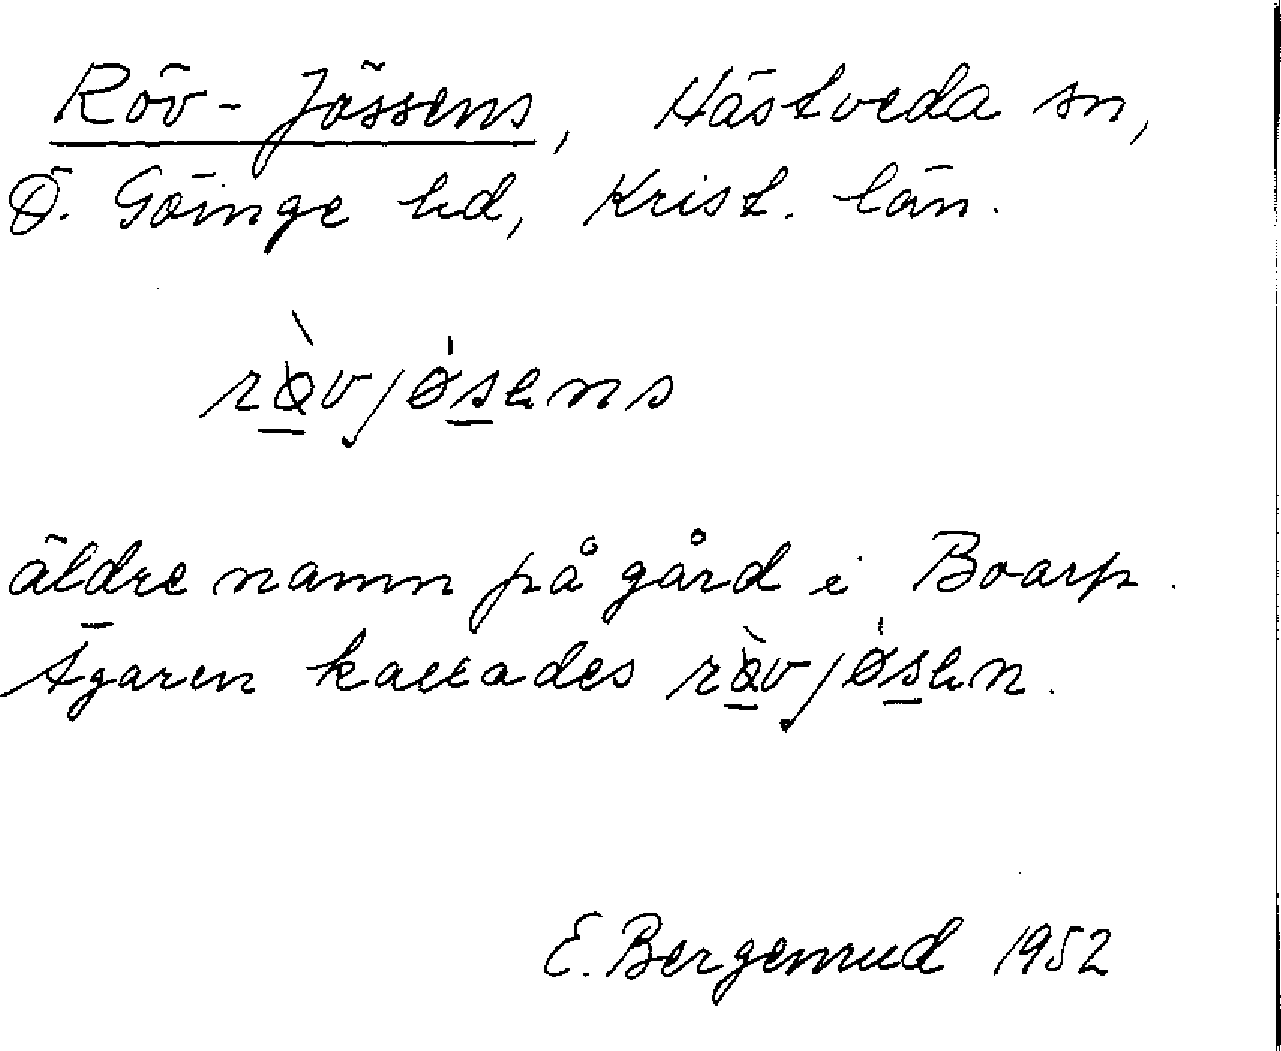 Röv-Jössens, Hästveda sn,
Ö. Göinge hd, Krist. län.
rø̀vjøsens
äldre namn på gård i Boarp.
Ägaren kallades rø̀vjøsen.
E. Bergenrud 1952